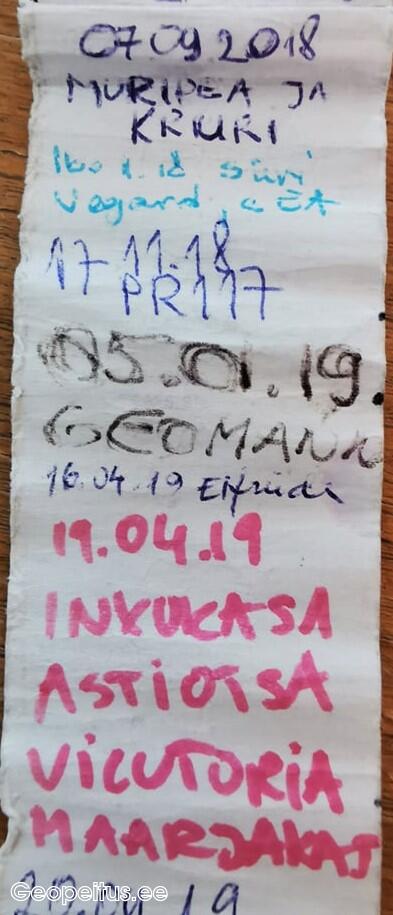 07.09.2018
MURIPEA JA
KRIURI
17.11.18
PR117
05.01.19.
GEOMANN
16.04.19
19.04.19
INKUKASA
ASTIOTSA
VICUTORIA
MAARJAKAJ
Geopeitus.ee
19